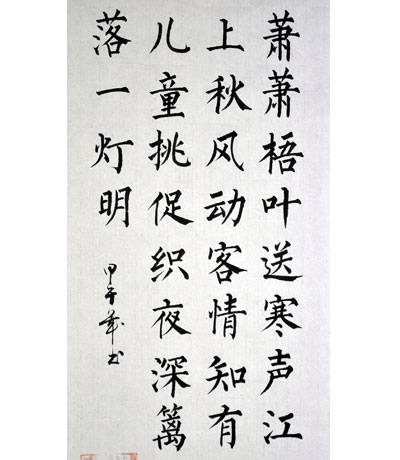 萧萧梧叶送寒声江
上秋风动客情知有
儿童挑促织夜深篱
落一灯明
甲午年书